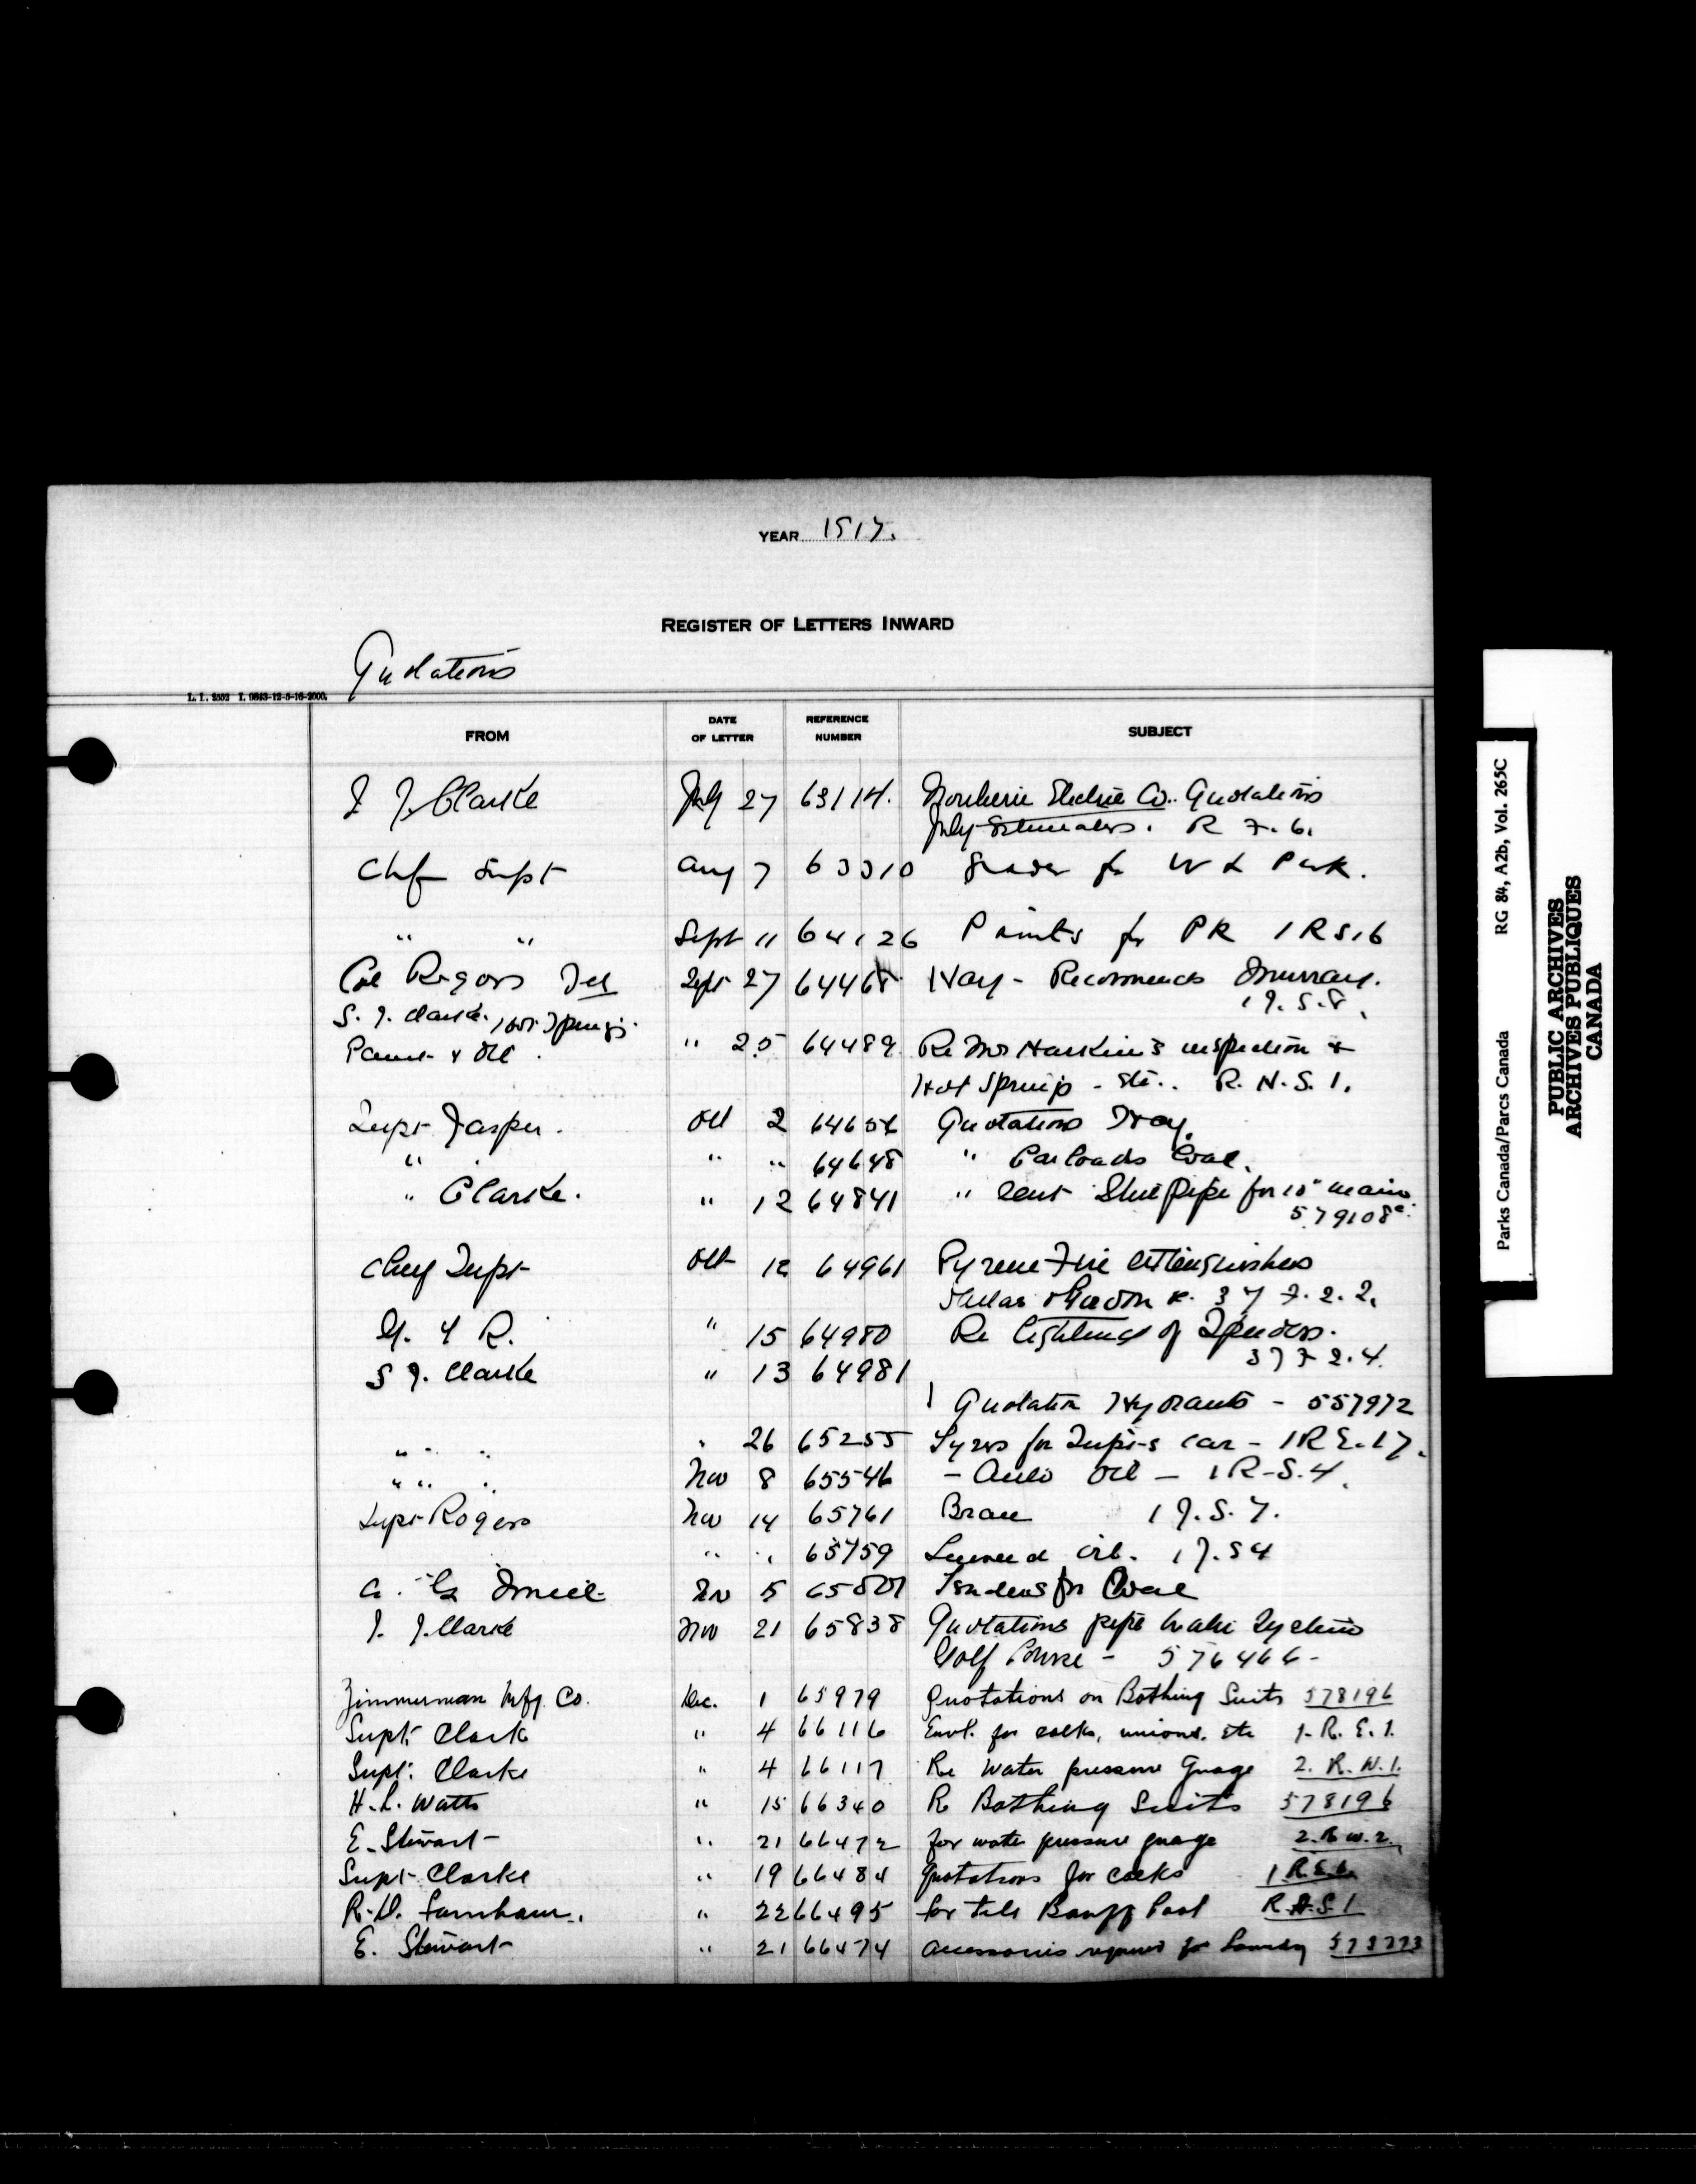 YEAR 1917.
REGISTER OF LETTERS INWARD
Quotations
L. I. 2552 I. 9843-12-5-16-2000.
FROM DATE OF LETTER REFERENCE NUMBER SUBJECT
J. Clarke July 27 63114. Northern Electric Co. Quotations
July Estimates. R 7. 6.
Chf Supt Aug 7 63310 for W L Park.
" " Sept 11 64126 Paints for PR 1RS16
Col Rogers Sept 27 64468 Hay - Recommends Murray.
S. J. Clarke. Hot Springs. 1 J. S. 8.
Paint & Oil. " 25 64489 Re Mr Harkin's inspection &
Hot Springs - etc.. R. H. S. 1.
Supt Jasper. Oct 2 64656 Quotations Hay.
" " " 64648 " Carloads Coal.
" Clarke. " 12 64841 " Steel Pipe for 10" main
579108
Chief Supt Oct 12 64961 Pyrene Fire Extinguishers
37 7. 2. 2.
" 15 64980 Re of Tenders.
37 7 2. 4.
S J. Clarke " 13 64981
Quotation Hydrants - 557972
" " " 26 65255 Tyres for Supt-s car - 1R E. 17.
" " " Nov 8 65546 - Auto Oil - 1 R-S. 4.
Supt Rogers Nov 14 65761 Bran 1 J. S. 7.
" " 65759 Linseed Oil. 1 J. S 4
Nov 5 Tenders for Coal
J. Clarke Nov 21 65838 Quotations pipe Water Systems
Golf Course - 576466 -
Zimmerman Mfg. Co. Dec. 1 65979 Quotations on Bathing Suits 578196
Supt. Clark " 4 66116 for cocks, unions. etc 1. R. E. 1.
Supt. Clarke " 4 66117 Re Water pressure Guage 2. R. W. 1.
H. L. Watts " 15 66340 R Bathing Suits 578196
E. Stewart " 21 66472 for water pressure guage 2. R W. 2.
Supt Clarke " 19 66484 quotations for cocks
R. D. Farnham. " 22 66495 for tile Banff Pool R. H. S 1
E. Stewart " 21 66474 accessories required for Laundry
Parks Canada/Parcs Canada RG 84, A2b, Vol. 265C
PUBLIC ARCHIVES
ARCHIVES PUBLIQUES
CANADA